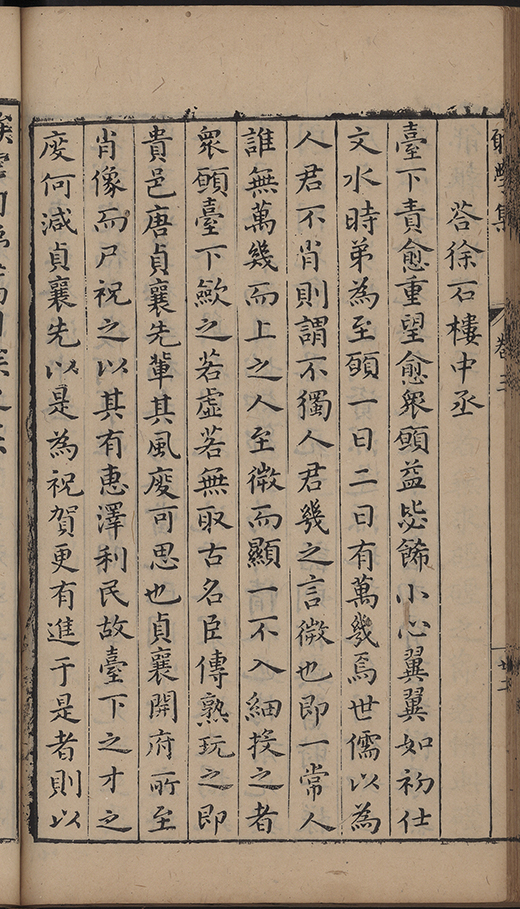 願學集 卷三
荅徐石樓中丞
臺下責愈重望愈衆願益毖飭小心翼翼如初仕
文水時弟為至願一日二日有萬幾焉世儒以為
人君不肖則謂不獨人君幾之言微也即一常人
誰無萬幾而上之人至微而顯一不入細授之者
衆願臺下歉之若虛若無取古名臣傳熟玩之即
貴邑唐貞襄先輩其風度可思也貞襄開府所至
肖像而尸祝之以其有惠澤利民故臺下之才之
度何減貞襄先以是為祝賀更有進于是者則以